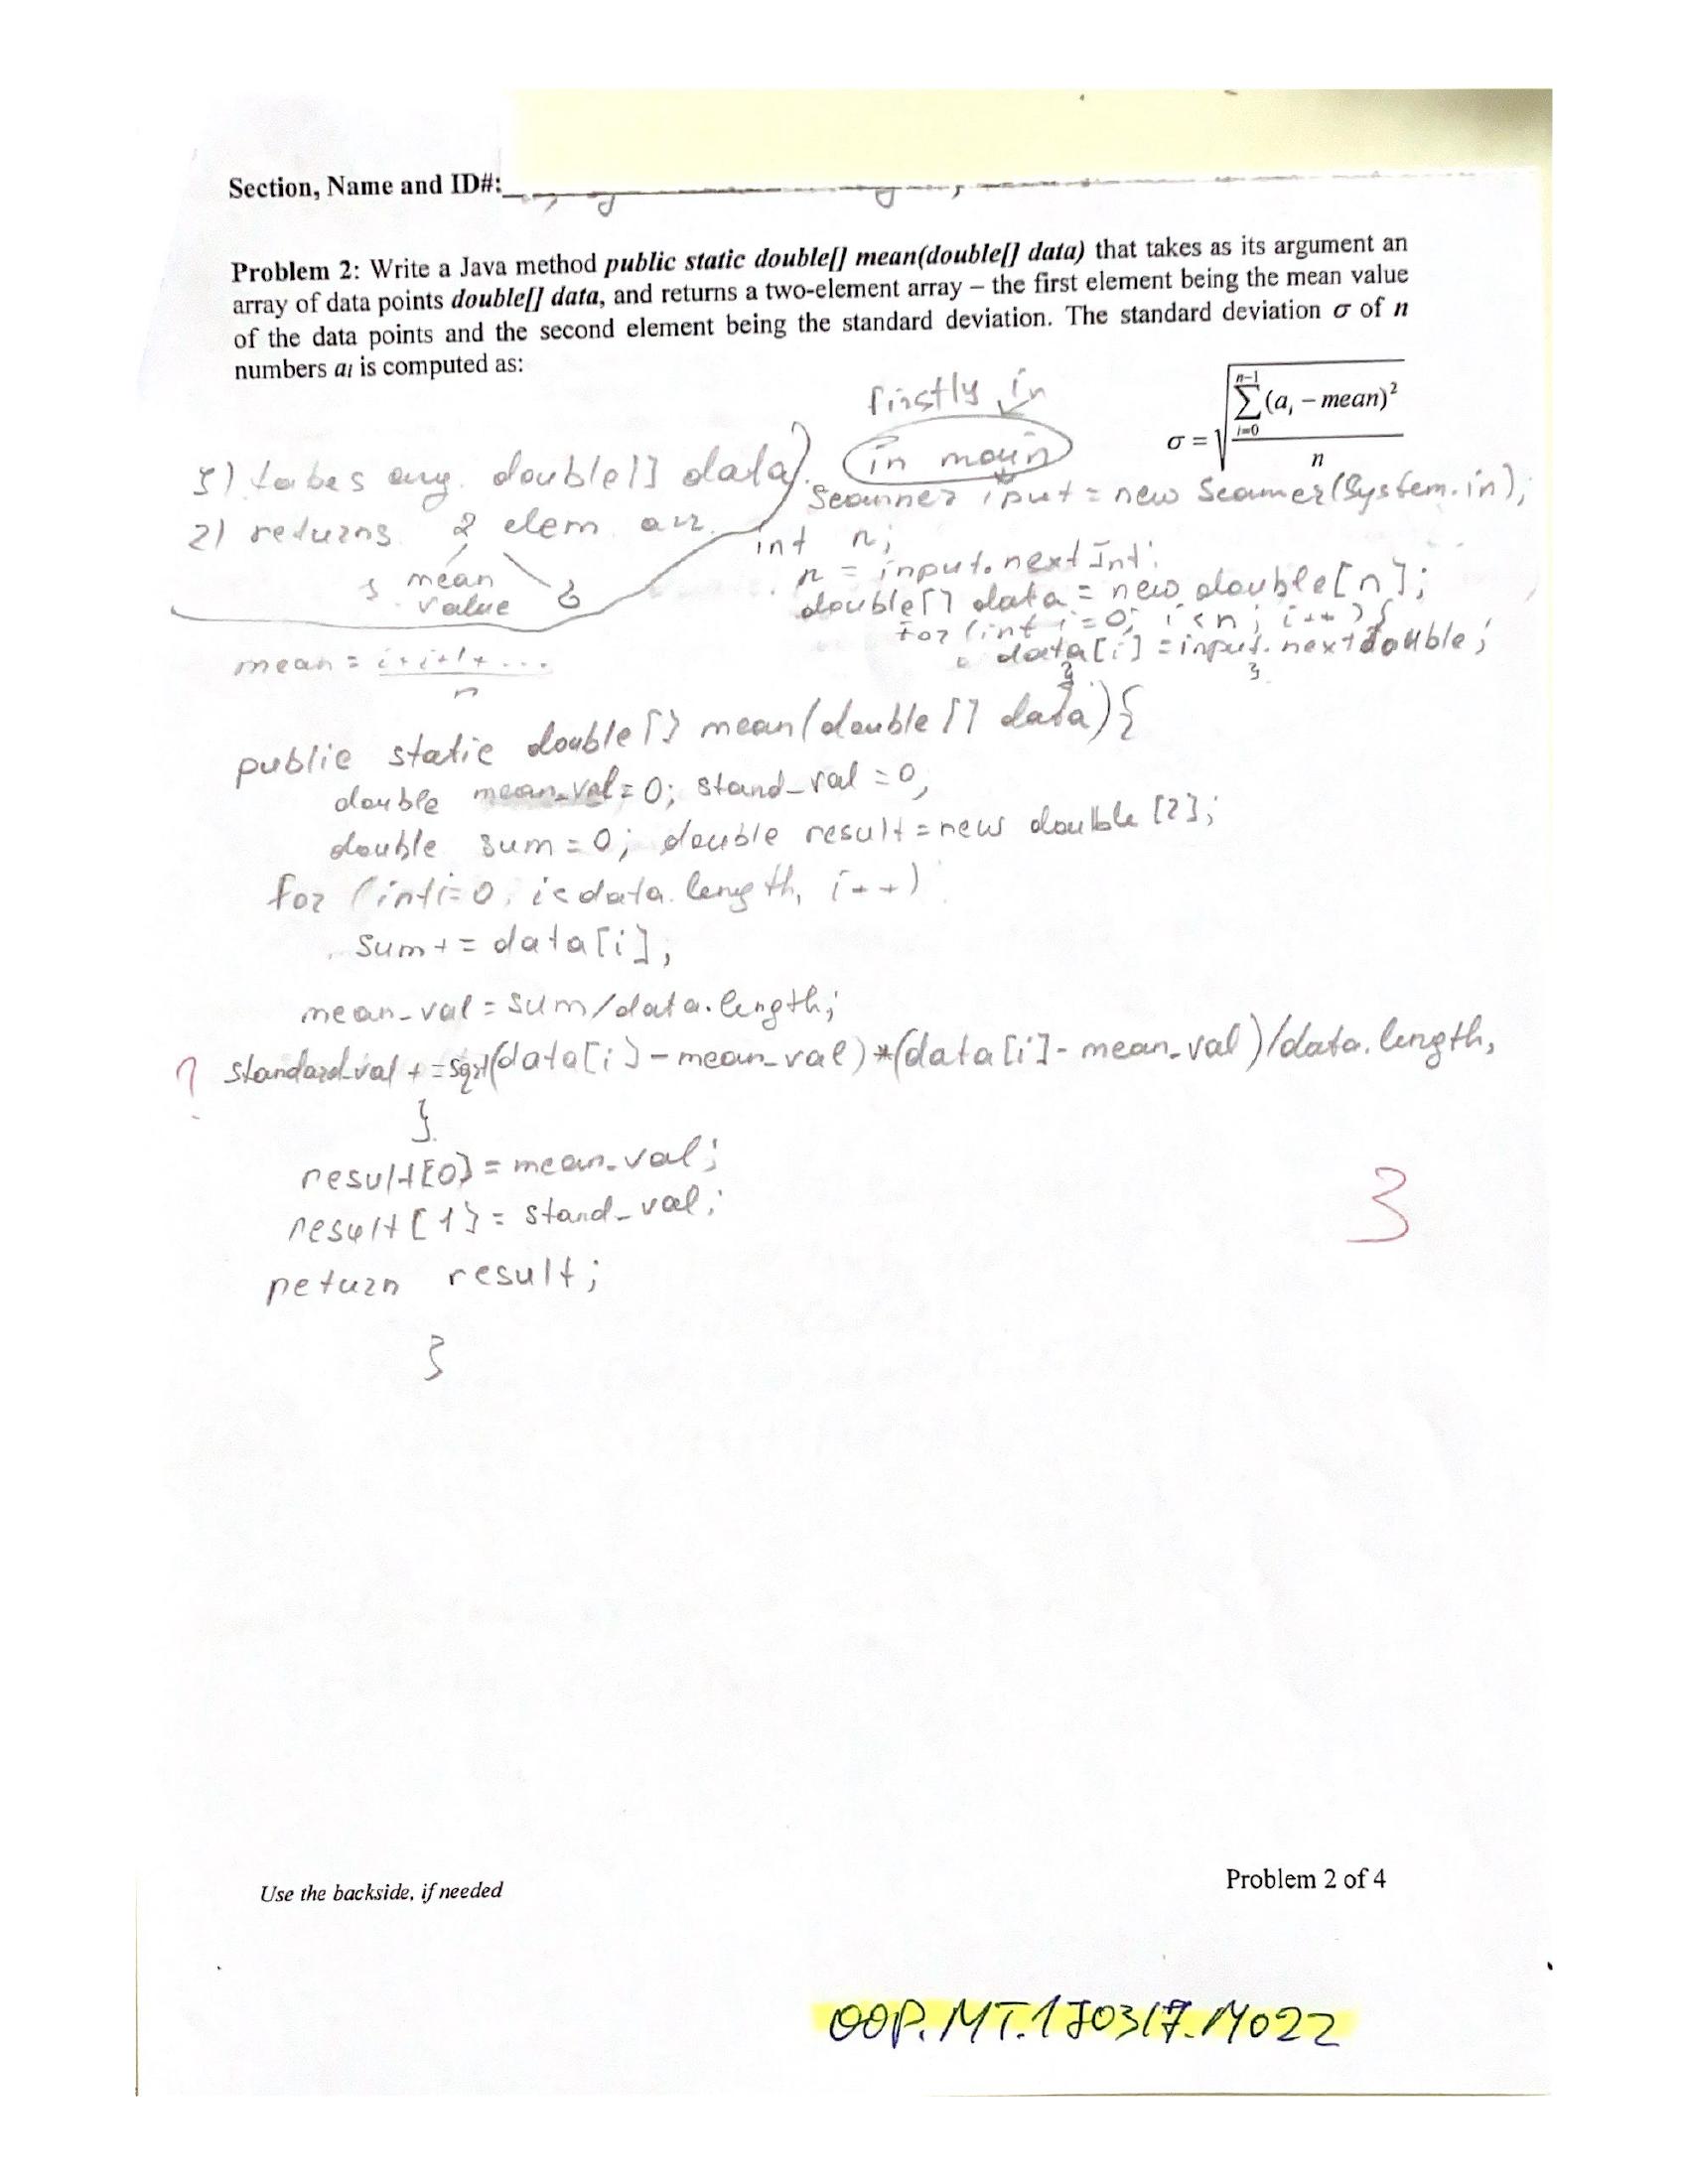 Section, Name and ID#:
Problem 2: Write a Java method public static double[] mean(double[] data) that takes as its argument an
array of data points double[] data, and returns a two-element array – the first element being the mean value
of the data points and the second element being the standard deviation. The standard deviation σ of n
numbers ai is computed as:
σ = √(∑(ai – mean)² / n) n–1 i=0
firstly in
in main
1) takes arg. double[] data
2) returns 2 elem arr.
1 mean
value
2
mean = i+i+i+...
n
Scanner iput = new Scanner(System.in);
int n;
n = input.nextInt;
double[] data = new double[n];
for (int i=0; i<n; i++){
data[i] = input.nextdouble;
}
public static double[] mean(double[] data){
double mean_val=0; stand_val=0;
double sum=0; double result=new double [2];
for (int i=0; i<data.length; i++)
sum+=data[i];
mean_val=sum/data.length;
? standard_val +=sqrt(data[i]-mean_val)*(data[i]-mean_val)/data.length;
}
result[0]=mean_val;
result[1]=stand_val;
3
return result;
}
Use the backside, if needed
Problem 2 of 4
OOP.MT.170317.M022